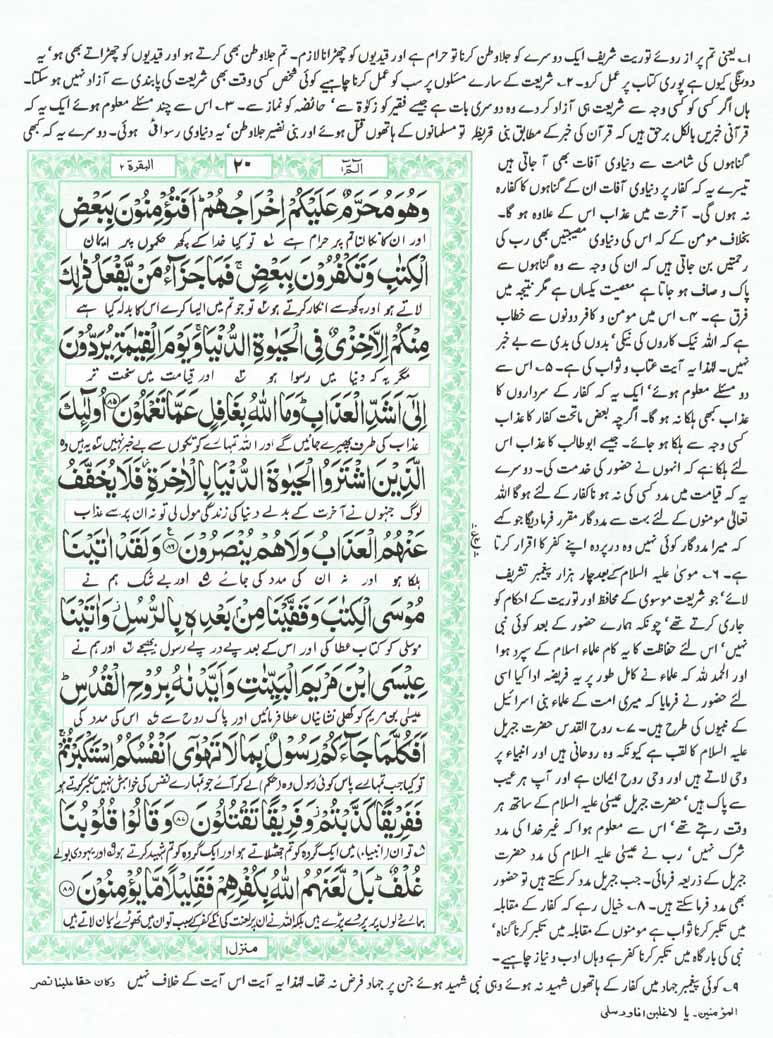 ۱۔ یعنی تم پر از روئے توریت شریف ایک دوسرے کو جلاوطن کرنا تو حرام ہے اور قیدیوں کو چھڑانا لازم۔ تم جلاوطن بھی کرتے ہو اور قیدیوں کو چھڑاتے بھی ہو' یہ
دورنگی کیوں ہے پوری کتاب پر عمل کرو۔ ۲۔ شریعت کے سارے مسئلوں پر سب کو عمل کرنا چاہیے کوئی شخص کسی وقت بھی شریعت کی پابندی سے آزاد نہیں ہو سکتا۔
ہاں اگر کسی کو کسی وجہ سے شریعت ہی آزاد کر دے وہ دوسری بات ہے جیسے فقیر کو زکوٰۃ سے' حائضہ کو نماز سے۔ ۳۔ اس سے چند مسئلے معلوم ہوئے ایک یہ کہ
قرآنی خبریں بالکل برحق ہیں کہ قرآن کی خبر کے مطابق بنی قریظہ تو مسلمانوں کے ہاتھوں قتل ہوئے اور بنی نضیر جلاوطن' یہ دنیاوی رسوائی ہوئی۔ دوسرے یہ کہ کبھی
گناہوں کی شامت سے دنیاوی آفات بھی آ جاتی ہیں
تیسرے یہ کہ کفار پر دنیاوی آفات ان کے گناہوں کا کفارہ
نہ ہوں گی۔ آخرت میں عذاب اس کے علاوہ ہو گا۔
بخلاف مومن کے کہ اس کی دنیاوی مصیبتیں بھی رب کی
رحمتیں بن جاتی ہیں کہ ان کی وجہ سے وہ گناہوں سے
پاک و صاف ہو جاتا ہے معصیت یکساں ہے مگر نتیجہ میں
فرق ہے۔ ۴۔ اس میں مومن و کافر دونوں سے خطاب
ہے کہ اللہ نیک کاروں کی نیکی' بدوں کی بدی سے بے خبر
نہیں۔ لہٰذا یہ آیت عتاب و ثواب کی ہے۔ ۵۔ اس سے
دو مسئلے معلوم ہوئے' ایک یہ کہ کفار کے سرداروں کا
عذاب کبھی ہلکا نہ ہو گا۔ اگرچہ بعض ماتحت کفار کا عذاب
کسی وجہ سے ہلکا ہو جائے۔ جیسے ابوطالب کا عذاب اس
لئے ہلکا ہے کہ انہوں نے حضور کی خدمت کی۔ دوسرے
یہ کہ قیامت میں مدد کسی کی نہ ہو نا کفار کے لئے ہو گا اللہ
تعالیٰ مومنوں کے لئے بہت سے مددگار مقرر فرما دیگا جو کہے
کہ میرا مددگار کوئی نہیں وہ درپردہ اپنے کفر کا اقرار کرتا
ہے۔ ۶۔ موسیٰ علیہ السلام کے بعد چار ہزار پیغمبر تشریف
لائے' جو شریعت موسوی کے محافظ اور توریت کے احکام کو
جاری کرتے تھے' چونکہ ہمارے حضور کے بعد کوئی نبی
نہیں' اس لئے حفاظت کا یہ کام علماء اسلام کے سپرد ہوا
اور الحمد للہ کہ علماء نے کامل طور پر یہ فریضہ ادا کیا اسی
لئے حضور نے فرمایا کہ میری امت کے علماء بنی اسرائیل
کے نبیوں کی طرح ہیں۔ ۷۔ روح القدس حضرت جبریل
علیہ السلام کا لقب ہے کیونکہ وہ روحانی ہیں اور انبیاء پر
وحی لاتے ہیں اور وحی روح ایمان ہے اور آپ ہر عیب
سے پاک ہیں' حضرت جبریل عیسیٰ علیہ السلام کے ساتھ ہر
وقت رہتے تھے' اس سے معلوم ہوا کہ غیر خدا کی مدد
شرک نہیں' رب نے عیسیٰ علیہ السلام کی مدد حضرت
جبریل کے ذریعہ فرمائی۔ جب جبریل مدد کر سکتے ہیں تو حضور
بھی مدد فرما سکتے ہیں۔ ۸۔ خیال رہے کہ کفار کے مقابلہ
میں تکبر کرنا ثواب ہے مومنوں کے مقابلہ میں تکبر کرنا گناہ'
نبی کی بارگاہ میں تکبر کرنا کفر ہے وہاں ادب و نیاز چاہیے۔
البقرة ۲
۲۰
الٓمّٓ ۱
وَهُوَ مُحَرَّمٌ عَلَيْكُمْ اِخْرَاجُهُمْ ۚ اَفَتُؤْمِنُوْنَ بِبَعْضِ
اور ان کا نکالنا تم پر حرام ہے تو کیا خدا کے کچھ حکموں پر ایمان
الْكِتٰبِ وَتَكْفُرُوْنَ بِبَعْضٍ ۚ فَمَا جَزَآءُ مَنْ يَّفْعَلُ ذٰلِكَ
لاتے ہو اور کچھ سے انکار کرتے ہو تو جو تم میں ایسا کرے اس کا بدلہ کیا ہے
مِنْكُمْ اِلَّا خِزْيٌ فِى الْحَيٰوةِ الدُّنْيَا ۚ وَيَوْمَ الْقِيٰمَةِ يُرَدُّوْنَ
مگر یہ کہ دنیا میں رسوا ہو اور قیامت میں سخت تر
اِلٰٓى اَشَدِّ الْعَذَابِ ۭ وَمَا اللّٰهُ بِغَافِلٍ عَمَّا تَعْمَلُوْنَ ۝۸۵ اُولٰٓئِكَ
عذاب کی طرف پھیرے جائیں گے اور اللہ تمہارے کوتکوں سے بے خبر نہیں یہ ہیں وہ
الَّذِيْنَ اشْتَرَوُا الْحَيٰوةَ الدُّنْيَا بِالْاٰخِرَةِ ۡ فَلَا يُخَفَّفُ
لوگ جنہوں نے آخرت کے بدلے دنیا کی زندگی مول لی تو نہ ان پر سے عذاب
عَنْهُمُ الْعَذَابُ وَلَا هُمْ يُنْصَرُوْنَ ۝۸۶ وَلَقَدْ اٰتَيْنَا
ہلکا ہو اور نہ ان کی مدد کی جائے اور بے شک ہم نے
مُوْسَى الْكِتٰبَ وَقَفَّيْنَا مِنْۢ بَعْدِهٖ بِالرُّسُلِ ۡ وَاٰتَيْنَا
موسیٰ کو کتاب عطا کی اور اس کے بعد پے در پے رسول بھیجے اور ہم نے
عِيْسَى ابْنَ مَرْيَمَ الْبَيِّنٰتِ وَاَيَّدْنٰهُ بِرُوْحِ الْقُدُسِ ۭ
عیسیٰ بن مریم کو کھلی نشانیاں عطا فرمائیں اور پاک روح سے اس کی مدد کی
اَفَكُلَّمَا جَآءَكُمْ رَسُوْلٌۢ بِمَا لَا تَهْوٰٓى اَنْفُسُكُمُ اسْتَكْبَرْتُمْ ۚ
تو کیا جب تمہارے پاس کوئی رسول وہ (حکم) لے کر آئے جو تمہارے نفس کی خواہش نہیں تکبر کرتے ہو
فَفَرِيْقًا كَذَّبْتُمْ ۡ وَفَرِيْقًا تَقْتُلُوْنَ ۝۸۷ وَقَالُوْا قُلُوْبُنَا
تو ان (انبیاء) میں ایک گروہ کو تم جھٹلاتے ہو اور ایک گروہ کو تم شہید کرتے ہو اور یہودی بولے
غُلْفٌ ۭ بَلْ لَّعَنَهُمُ اللّٰهُ بِكُفْرِهِمْ فَقَلِيْلًا مَّا يُؤْمِنُوْنَ ۝۸۸
ہمارے دلوں پر پردے پڑے ہیں بلکہ اللہ نے ان پر لعنت کی انکے کفر کے سبب تو ان میں تھوڑے ایمان لاتے ہیں
منزل ۱
۹۔ کوئی پیغمبر جہاد میں کفار کے ہاتھوں شہید نہ ہوئے وہی نبی شہید ہوئے جن پر جہاد فرض نہ تھا۔ لہٰذا یہ آیت اس آیت کے خلاف نہیں وکان حقا علینا نصر
المؤمنین۔ یا لاغلبن انا ورسلی